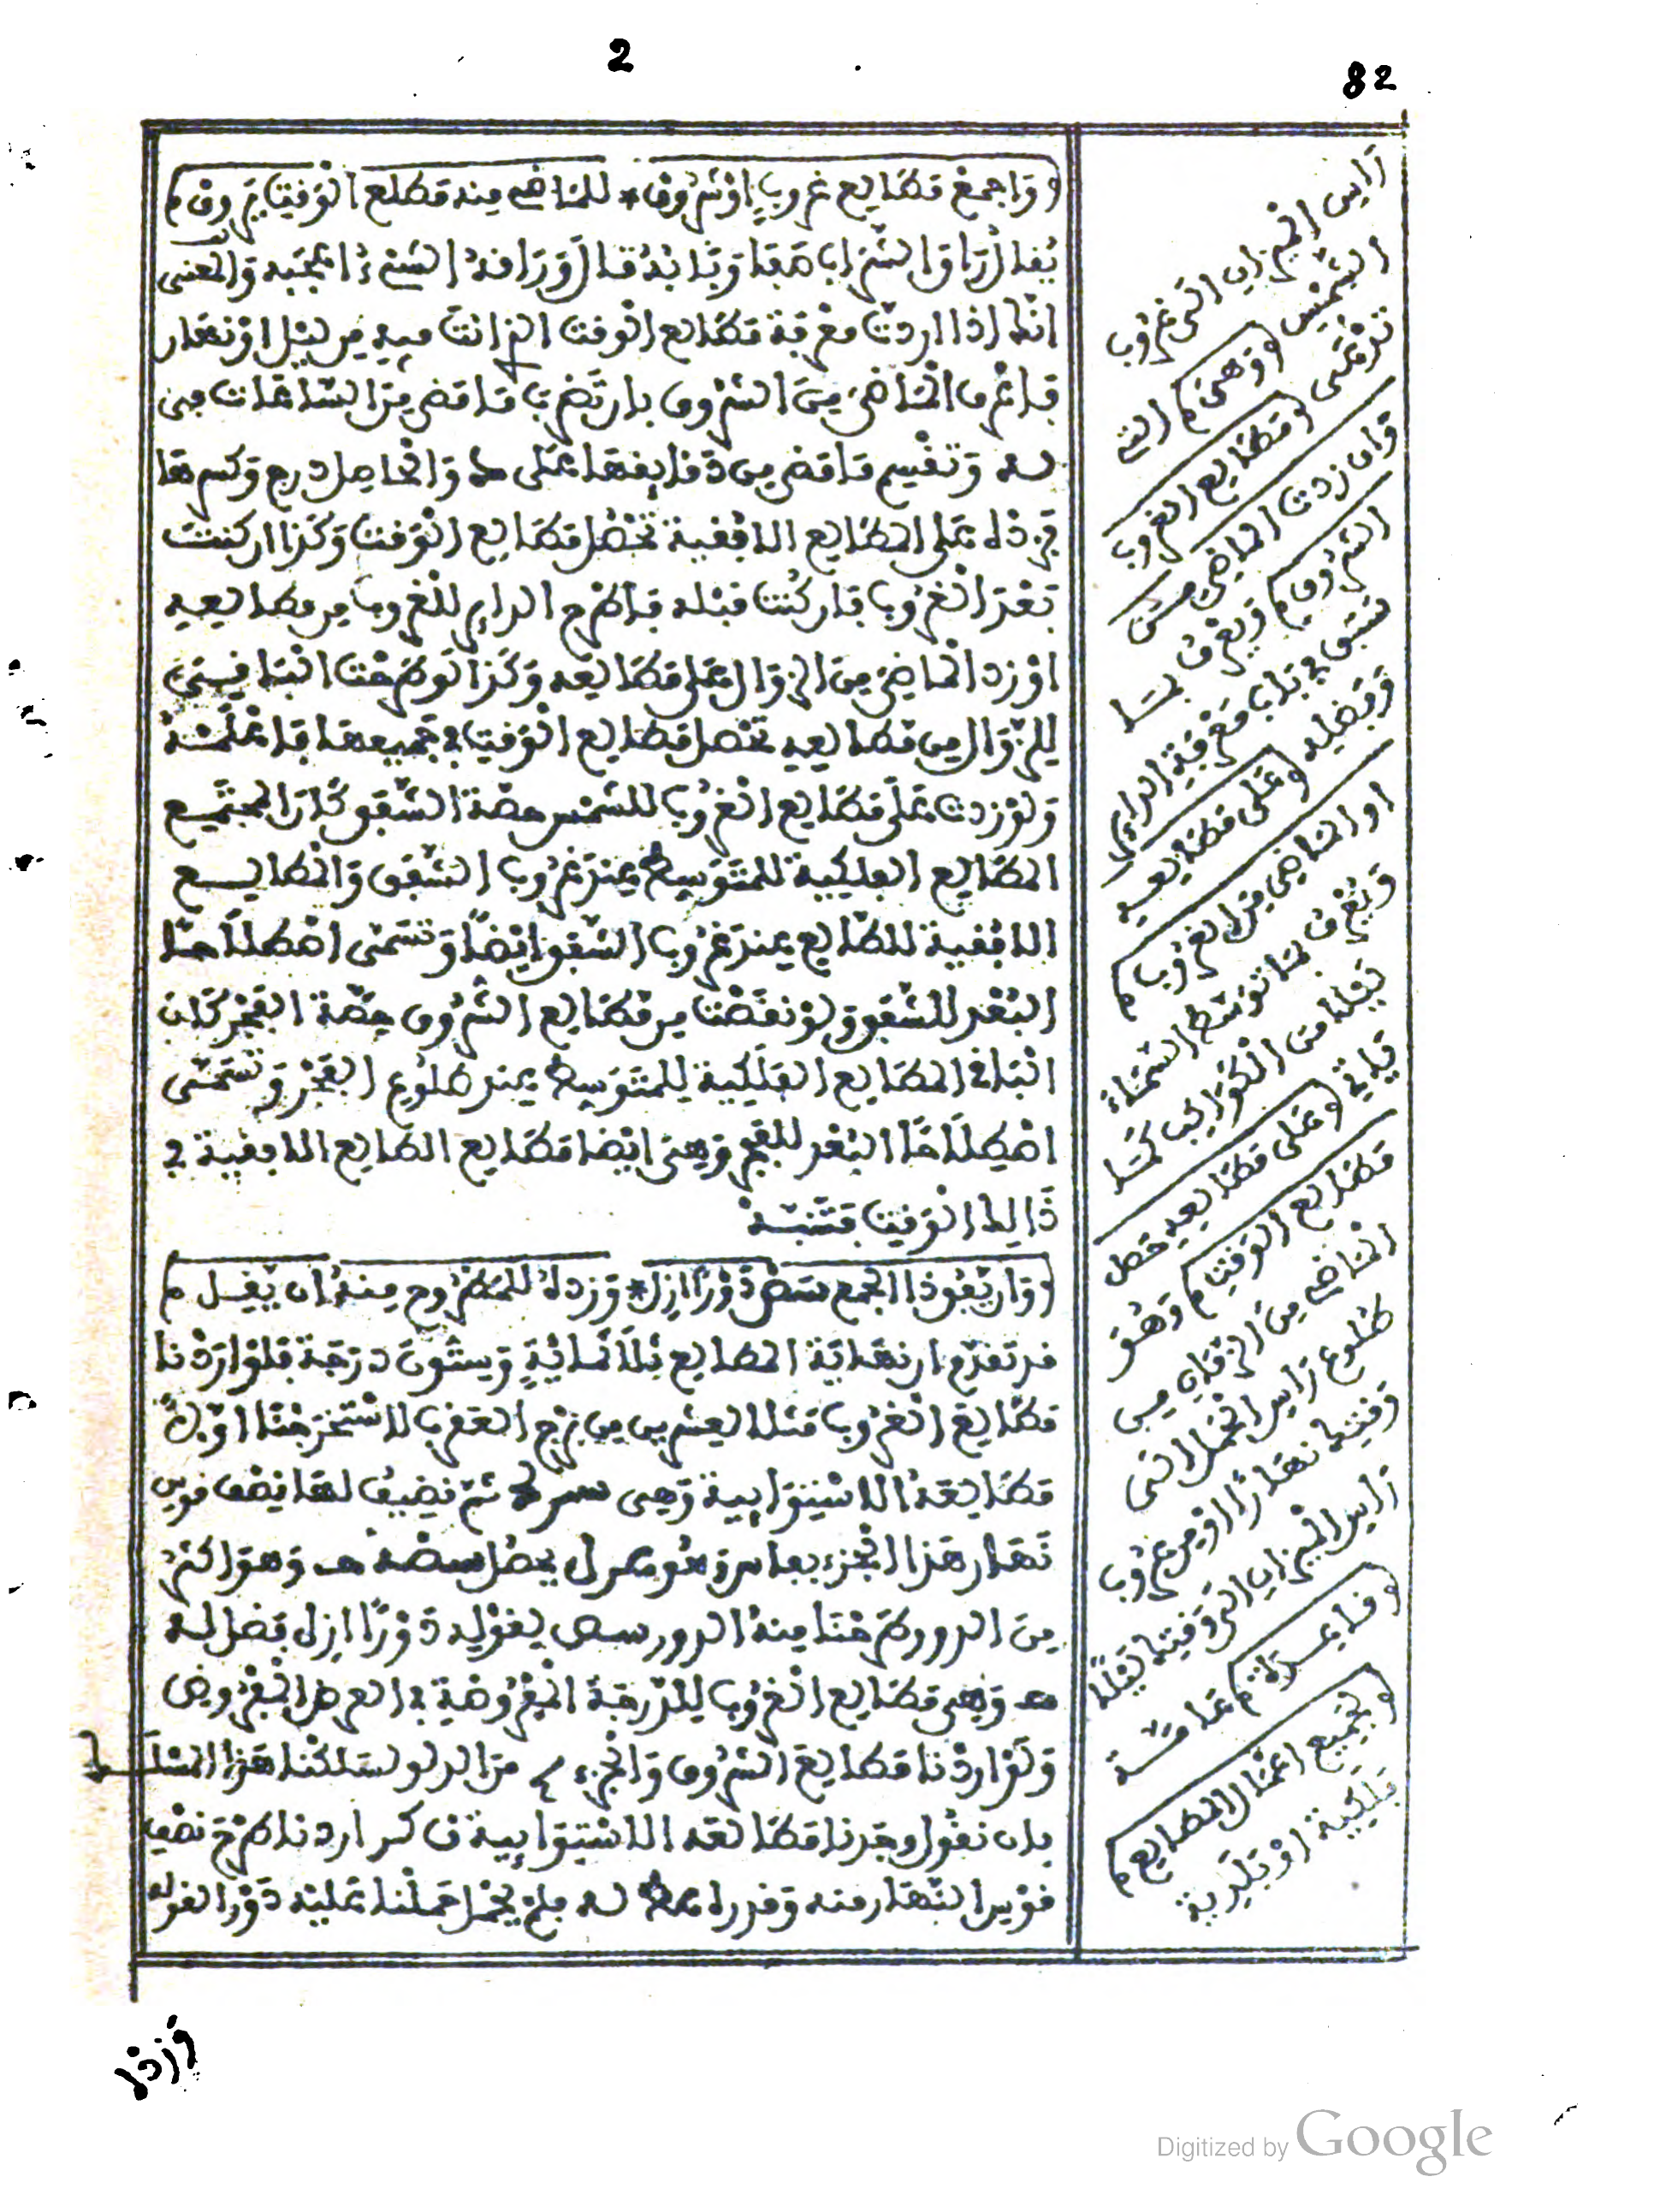 2
82
واجمع مطالع غروب او شروق * للماضي منه مطلع الوقت يروق م
يقال راق الشراب صفا
انك اذا اردت معرفة مطالع الوقت الذي انت فيه من ليل او نهار
فاعرف الماضي من الشروق بان تضرب ما مضى من الساعات في
له وتقسم ما مضى من دقايقها على والحاصل درج وكسرها
فزد له على المطالع الافقية تحصل مطالع الوقت وكذا ان كنت
بعد الغروب فان كنت قبله فاطرح الداير للغروب من مطالعه
او زد الماضي من الزوال على مطالعه وكذا لو طرحت الباقي
للزوال من مطالعه تحصل مطالع الوقت في جميعها فاعلمه
ولو زدت على مطالع الغروب للشمس حصة الشفق كان المجتمع
المطالع الفلكية للمتوسط عند غروب الشفق والمطالع
الافقية للطالع عند غروب الشفق ايضا وتسمى اصطلاحا
البعد للشفق ولو نقصت من مطالع الشروق حصة الفجر كان
الباقي المطالع الفلكية للمتوسط عند طلوع الفجر وتسمى
اصطلاحا البعد للفجر وهي ايضا مطالع الطالع الافقية في
ذالك الوقت فتنبه
وان يفق ذا الجمع شص دورا ازل * وزد له للمطروح منه ان يقل م
قد تقدم ان نهاية المطالع ثلاثماية وستون درجة فلو اردنا
مطالع الغروب مثلا لعشرين من برج العقرب لاستخرجنا اولا
مطالعه الاستوايية وهي ثم نضيف لها نصف قوس
نهار هذا الجزء بفاس وهو يحصل وهو اكثر
من الدور طرحنا منه الدور لقوله دورا ازل يفضل له
وهي مطالع الغروب للدرجة المفروضة في العرض المفروض
ولو اردنا مطالع الشروق والجزء من الدلو لسلكنا هذا المسلك
بان نقول وجدنا مطالعه الاستوايية اردنا طرح نصف
قوس النهار منه وقدره له فلم يحمل حملنا عليه دور لقوله
وزد له
راس الميزان الى غروب
الشمس وهي م التي
تدعى مطالع الغروب
وان زدت الماضي من
الشروق م ويعرف بما
سبق في باب معرفة الداير
وفضله على مطالعه
او الماضي من الغروب م
ويعرف بما توسط السماء
ليلا من الكواكب كما
ياتي على مطالعه حصل
مطالع الوقت م وهو
الماضي من الزمان من
طلوع راس الحمل الى
وقتك نهارا او من غروب
راس الميزان الى وقتك ليلا
م عامة
لجميع اعمال المطالع م
فلكية او بلدية
Digitized by Google